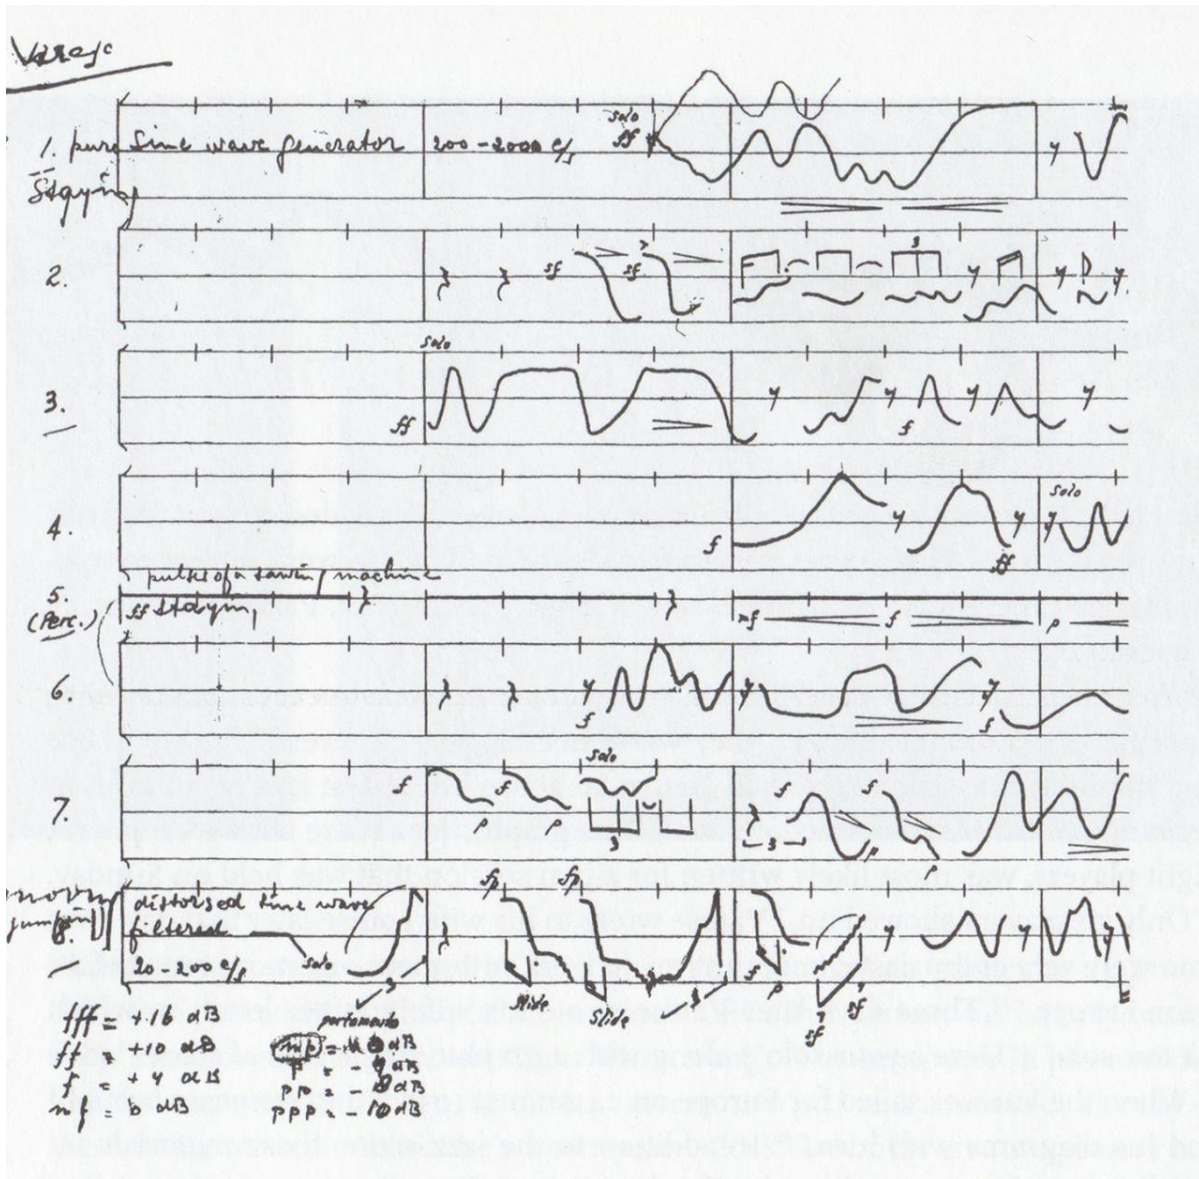 Varese
1. pure sine wave generator 200-2000 c/s
solo
ff
staying
2.
sf sf
3
3.
solo
ff
f
4.
f
ff
solo
pulses of a sewing machine
5.
(Perc.)
ff staying
mf f p
6.
f
f
7.
f
p
f
p
solo
3
3
f
p
p
8.
distorsed sine wave
filtered
20-200 c/s
solo
sfp sfp
slide
slide
sf
sf
fff = +16 dB
ff = +10 dB
f = +4 dB
mf = 0 dB
portamento
pp =
dB
ppp = - 10 dB